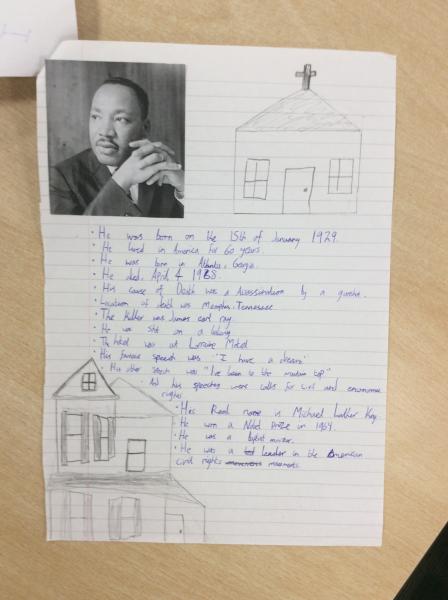 • He was born on the 15th of January 1929.
• He lived in America for 60 years.
• He was born in Atlanta, Gorgia.
• He died April 4 1968.
• His cause of Death was a Assassination by a gunshot.
• Location of death was Memphis, Tennessee
• The Killer was James earl ray.
• He was shot on a balcony
The hotel was at Lorraine Motel
• His famous speech was "I have a dream"
• His other speech was "I've been to the mountain top"
• And his speeches were calls for civil and economic
rights
• His Real name is Michael Luther King.
• He won a Nobel Prize in 1964.
• He was a baptist minister.
• He was a leader in the American
civil rights movements.